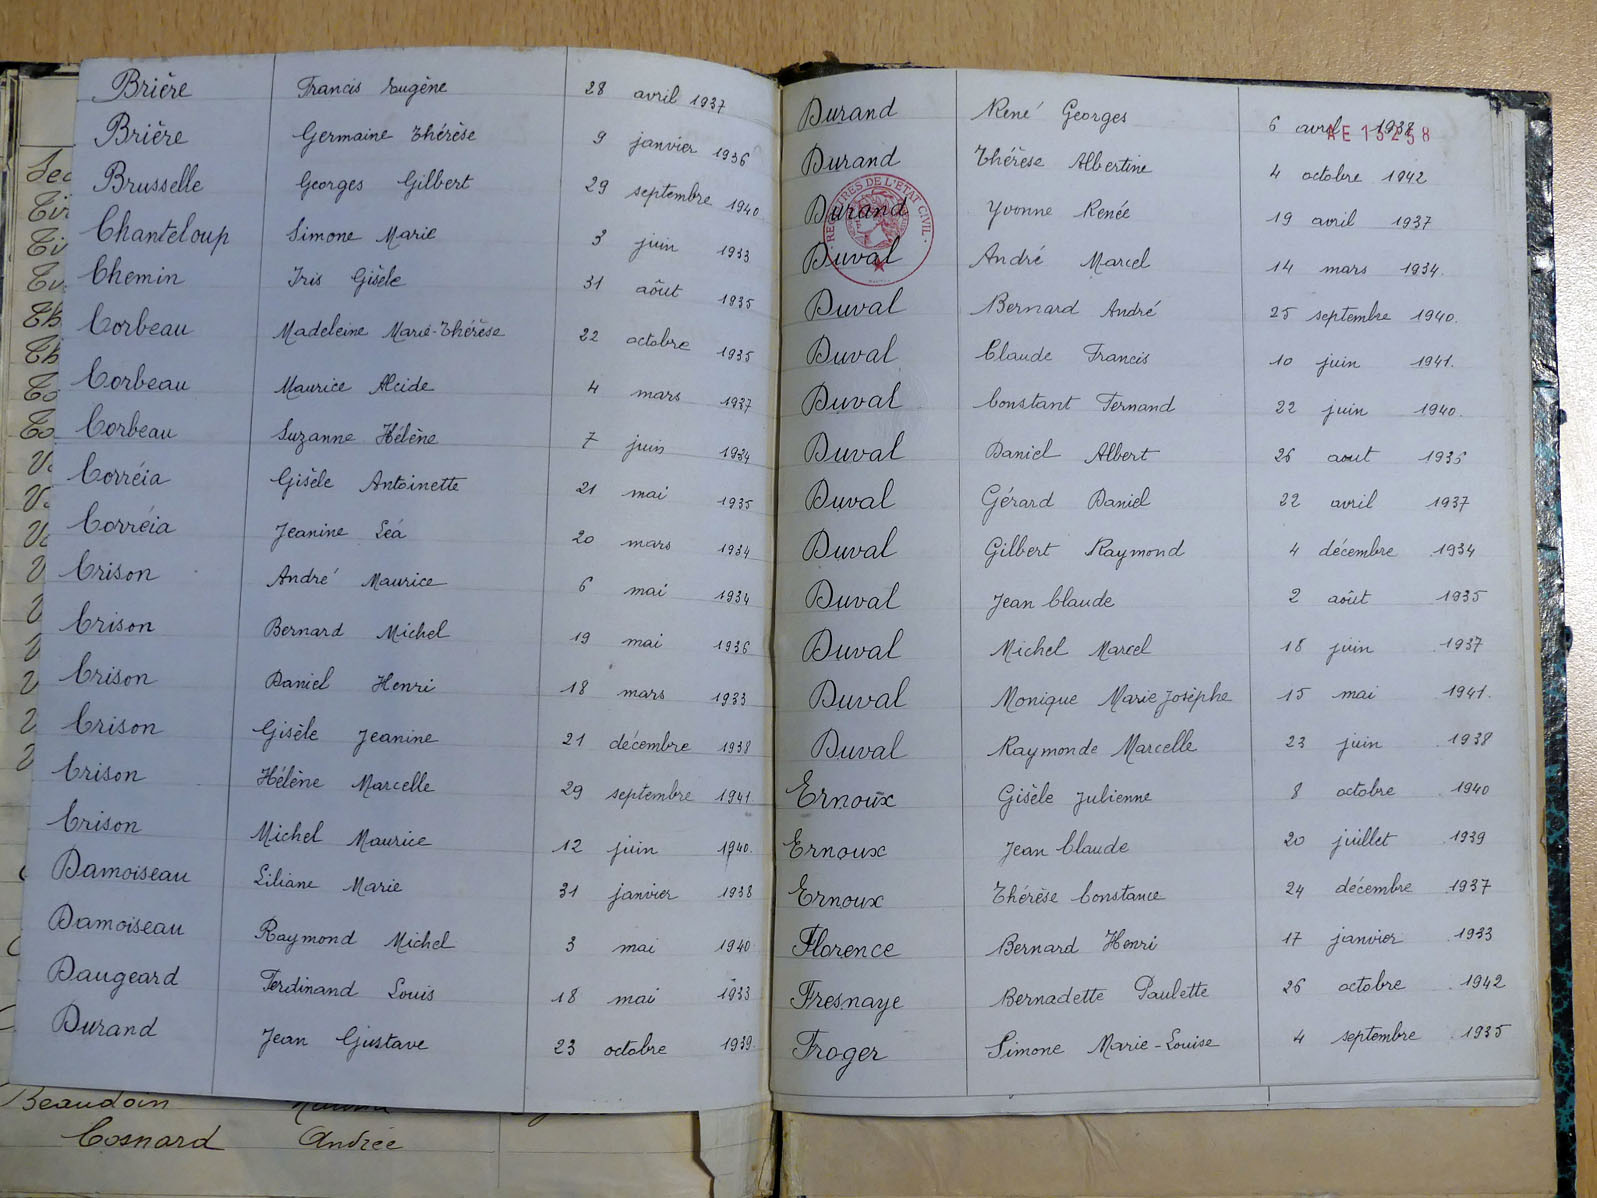 Brière Francis Eugène 28 avril 1937
Brière Germaine Thérèse 9 janvier 1936
Brusselle Georges Gilbert 29 septembre 1940
Chanteloup Simone Marie 3 juin 1933
Chemin Iris Gisèle 31 aôut 1935
Corbeau Madeleine Marie-Thérèse 22 octobre 1935
Corbeau Maurice Alcide 4 mars 1937
Corbeau Suzanne Hélène 7 juin 1934
Corréia Gisèle Antoinette 21 mai 1935
Corréia Jeanine Léa 20 mars 1934
Crison André Maurice 6 mai 1934
Crison Bernard Michel 19 mai 1936
Crison Daniel Henri 18 mars 1933
Crison Gisèle Jeanine 21 décembre 1938
Crison Hélène Marcelle 29 septembre 1941
Crison Michel Maurice 12 juin 1940.
Damoiseau Liliane Marie 31 janvier 1938
Damoiseau Raymond Michel 3 mai 1940
Daugeard Ferdinand Louis 18 mai 1933
Durand Jean Gustave 23 octobre 1939
Beaudoin
Cosnard Andrée
Durand René Georges 6 avril 1938
AE 13258
Durand Thérèse Albertine 4 octobre 1942
Durand Yvonne Renée 19 avril 1937
REGISTRES DE L'ETAT CIVIL
Duval André Marcel 14 mars 1934.
Duval Bernard André 25 septembre 1940.
Duval Claude Francis 10 juin 1941.
Duval Constant Fernand 22 juin 1940.
Duval Daniel Albert 26 aout 1936
Duval Gérard Daniel 22 avril 1937
Duval Gilbert Raymond 4 décembre 1934
Duval Jean Claude 2 aôut 1935
Duval Michel Marcel 18 juin 1937
Duval Monique Marie Josèphe 15 mai 1941.
Duval Raymonde Marcelle 23 juin 1938
Ernoux Gisèle Julienne 8 octobre 1940
Ernoux Jean Claude 20 juillet 1939
Ernoux Thérèse Constance 24 décembre 1937
Florence Bernard Henri 17 janvier 1933
Fresnaye Bernadette Paulette 26 octobre 1942
Froger Simone Marie-Louise 4 septembre 1935